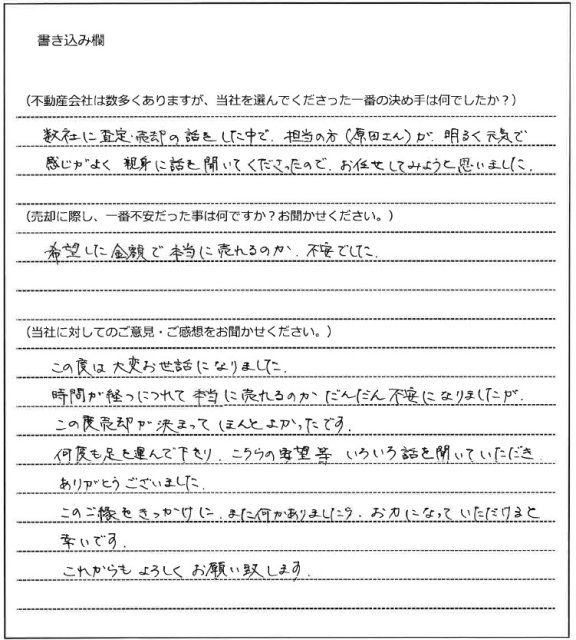 書き込み欄
（不動産会社は数多くありますが、当社を選んでくださった一番の決め手は何でしたか？）
数社に査定・売却の話をした中で、担当の方（原田さん）が、明るく元気で
感じがよく 親身に話を聞いてくださったので、お任せしてみようと思いました。
（売却に際し、一番不安だった事は何ですか？お聞かせください。）
希望した金額で本当に売れるのか、不安でした。
（当社に対してのご意見・ご感想をお聞かせください。）
この度は大変お世話になりました。
時間が経つにつれて本当に売れるのか だんだん不安になりましたが、
この度売却が決まって ほんとよかったです。
何度も足を運んで下さり、こちらの要望等 いろいろ話を聞いていただき
ありがとうございました。
このご縁をきっかけに、また何かありましたら、お力になっていただけると
幸いです。
これからも よろしく お願い致します。